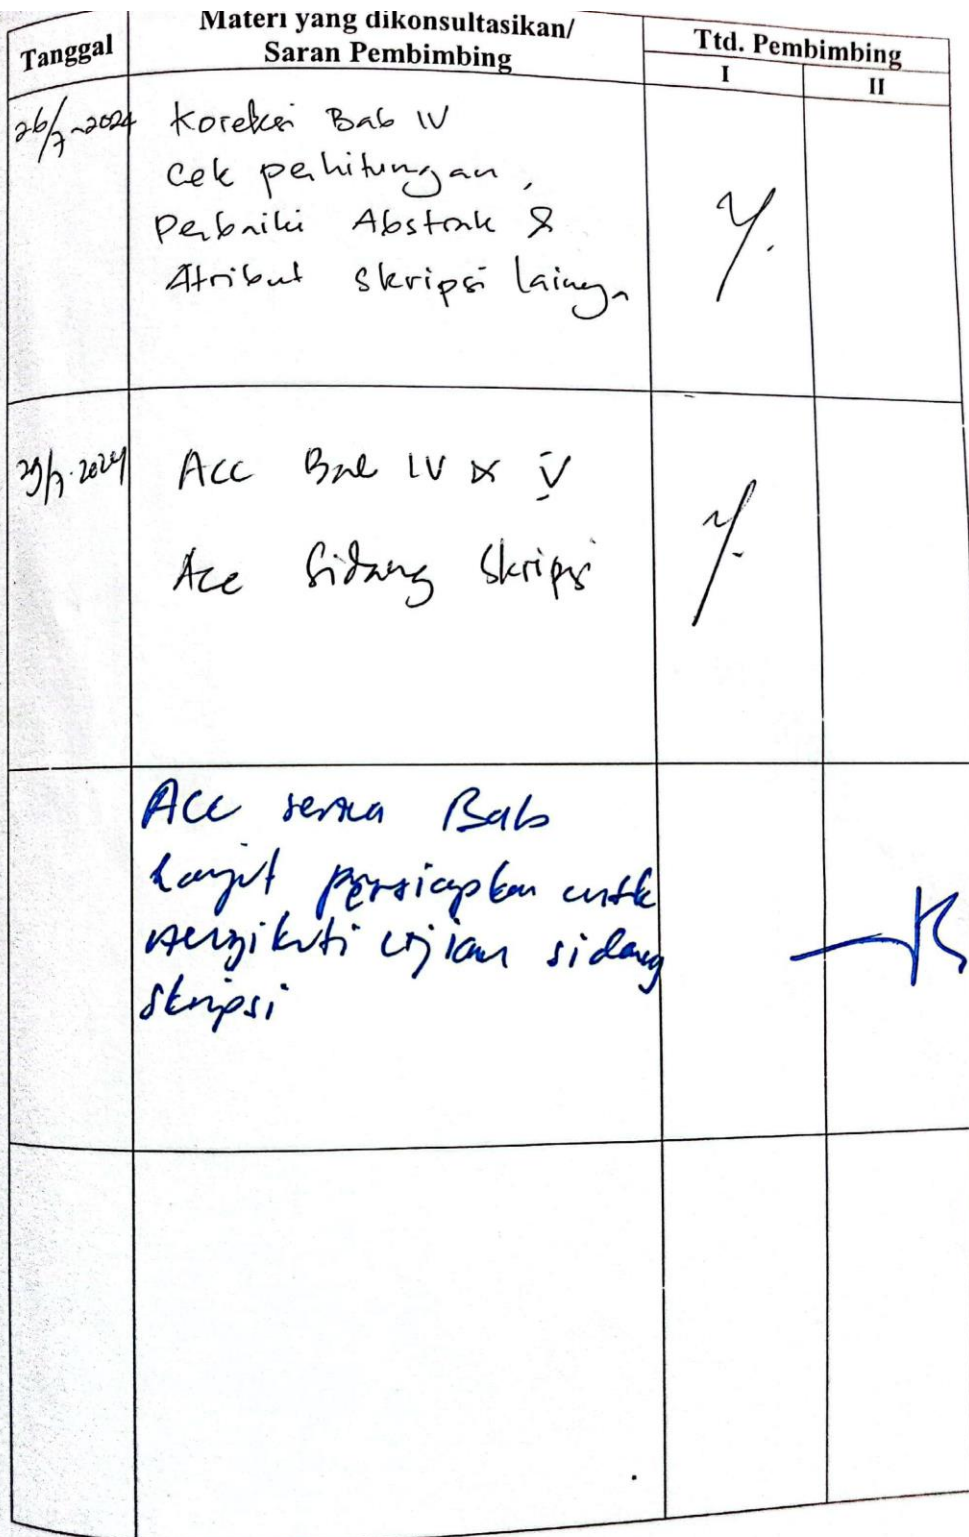 Tanggal
Materi yang dikonsultasikan/
Saran Pembimbing
Ttd. Pembimbing
I
II
26/7-2024
Koreksi Bab IV
Cek perhitungan,
Perbaiki Abstrak &
Atribut skripsi lainnya
29/7-2024
Acc Bab IV & V
Acc Sidang Skripsi
Acc semua Bab
Lanjut persiapkan untuk
mengikuti ujian sidang
skripsi